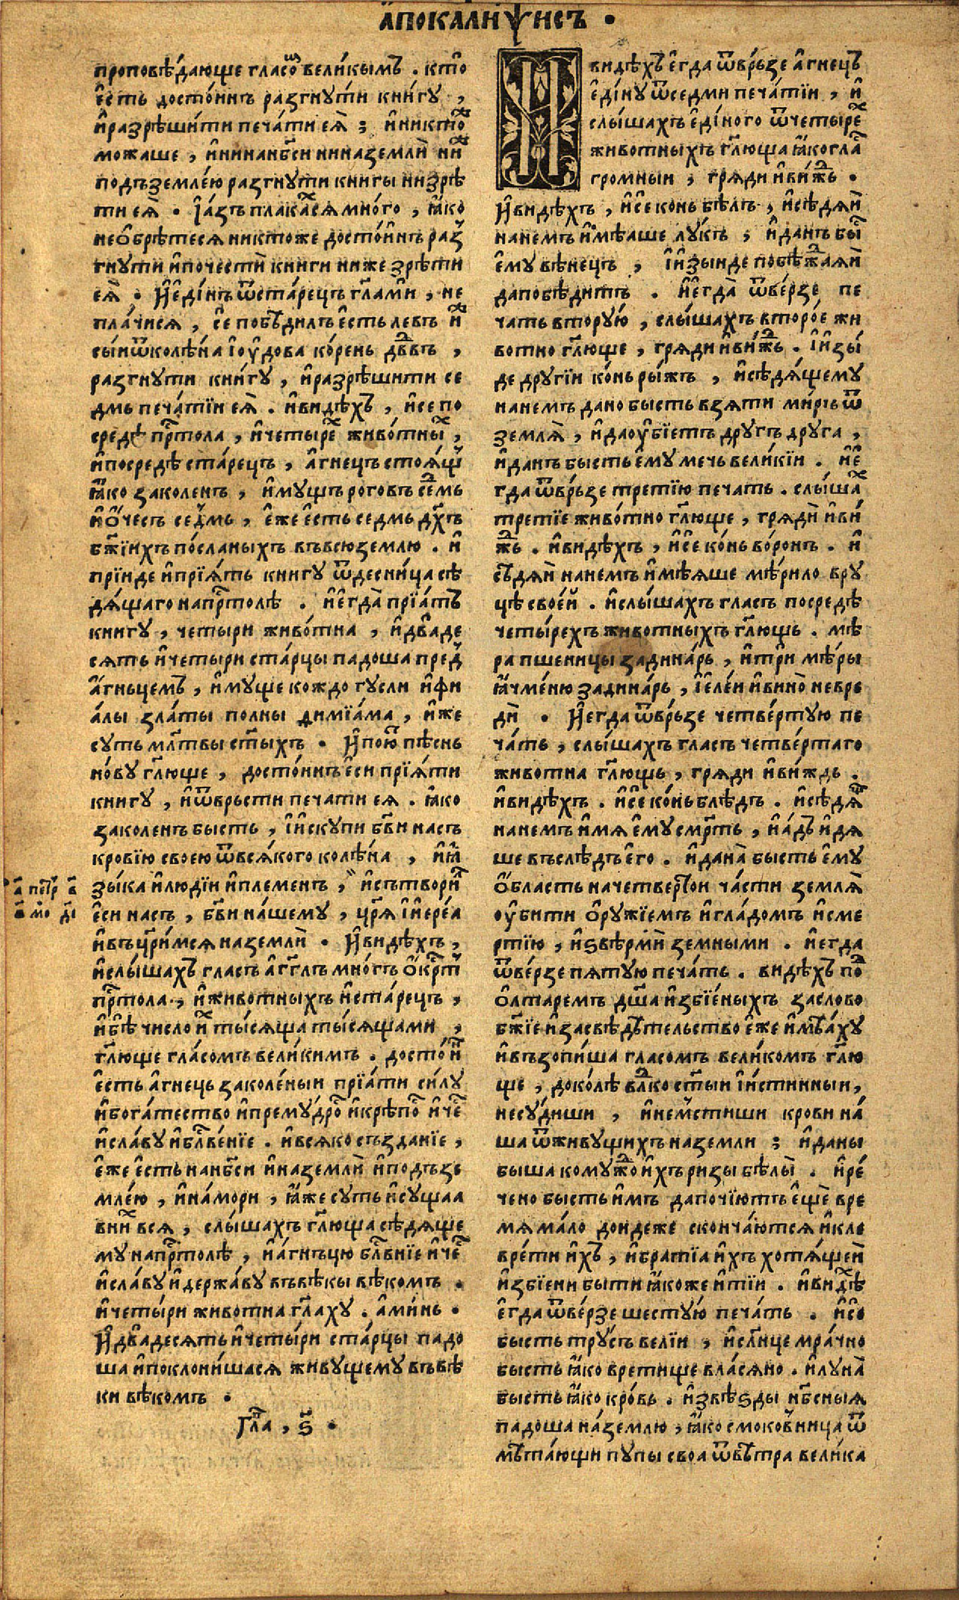 а҆покали́ѱисъ •
проповѣ́дающе гласо́ⷨ вели́кымъ . кто̀
є҆́сть досто́инъ разгну́ти кни́гу ,
и҆разрѣши́ти печа́ти еѧ̀ ; и҆никто́ⷤ
можаше , и҆нинанб҃си ниназемлѝ ниⷤ
подъземле́ю разгну́ти книгы низрѣ
ти еѧ̀ • І҆а́зъ плака́хсѧ мно́го , ꙗ҆́ко
нео҆брѣ́тесѧ никтоже досто́инъ раз
гну́ти и҆почестѝ книги ниже зрѣ́ти
еѧ̀ • И҆є҆ди́нъ ѿста́рецъ гл҃ами , не
пла́чисѧ , се́ побѣдилъ є҆́сть левъ и҆́ⷤ
сы́и ѿколѣ́на і҆оу҆́дова ко́рень дв҃въ ,
разгнути кни́гу , и҆разрѣши́ти се
дмь печа́тїи еѧ̀ . и҆ви́дѣхъ , и҆се по
средѣ̀ прⷭ҇тола , и҆четы́ре живо́тныⷯ ,
и҆посредѣ̀ ста́рецъ , а҆́гнецъ стоѧ́щь
ꙗ҆́ко заколенъ , и҆мущъ роговъ се́дмь
и҆о҆́чесъ се́дмь , є҆́же є҆́сть седмь дх҃ъ
бж҃їихъ по́сланыхъ въвсю̀землю . и҆
прїи́де и҆прїѧ́тъ книгу ѿдесни́ца сѣ
дѧ́щаго напрⷭ҇толѣ . и҆є҆гда̀ прїѧ́тъ
книгу , четыри живо́тна , и҆два́де
сѧть и҆четыри ста́рцы падоша преⷣ
а҆́гньцемъ , и҆муще кождо гусли и҆фи
а́лы зла́ты полны димїа́ма , и҆́же
суть мл҃твы ст҃ыхъ • И҆пою́ⷮ пѣснь
но́ву гл҃юще , досто́инъ є҆сѝ прїѧ́ти
книгу , и҆ѿврьсти печа́ти еѧ̀ . ꙗ҆́ко
заколенъ бысть , і҆и҆скупи бг҃ви насъ
кровїю своею ѿвсѧ́кого колѣ́на , и҆ꙗ҆
зы́ка и҆лю́дїи и҆племенъ , и҆сътвори́ⷧ
є҆сѝ насъ , бг҃ви на́шему , цр҃ѧ̀ і҆и҆ере́а
и҆въцр҃и́мсѧ наземлѝ • И҆ви́дѣхъ ,
и҆слы́шахъ гласъ а҆́гг҃лъ многъ о҆́крⷭ҇тъ
прⷭ҇тола , и҆живо́тныхъ и҆ста́рецъ ,
и҆бѣ̀ число̀ и҆́ⷯ ты́сѧща ты́сѧщами ,
гл҃юще гла́сомъ вели́кимъ . досто́иⷩ
є҆́сть а҆́гнець заколе́ныи прїа́ти си́лу
и҆бога́тество и҆прему́дроⷭ҇ и҆крѣ́поⷭ҇ и҆че́ⷭ҇
и҆сла́ву и҆блⷭ҇ве́нїе . и҆всѧко създанїе ,
є҆́же є҆́сть нанб҃си и҆наземлѝ и҆подъзе
мле́ю , и҆на́мори , ꙗ҆́же суть и҆сущаа
вниⷯ всѧ̀ , слы́шахъ гл҃юща сѣдѧще
му напрⷭ҇толѣ , и҆а҆́гньцю блⷭ҇внїе и҆че́ⷭ҇
и҆сла́ву и҆держа́ву въвѣкы вѣ́комъ •
и҆четы́ри животна гл҃аху . а҆ми́нь •
И҆два́десѧть и҆четы́ри ста́рцы падо
ша и҆поклони́шасѧ живущему въвѣ̀
ки вѣкомъ •
Глⷡ҇а , ѕ҃ •
а҆ петр в҃
в҃ мо дⷯі
И҆видѣхъ є҆гда ѿврьзе а҆́гнецъ
є҆ди́ну ѿседми печа́тїи , и҆
слы́шахъ є҆ди́ного ѿчетыреⷯ
животныхъ гл҃юща ꙗ҆́когла́ⷭ҇
громныи , грѧди и҆ви́жⷣь •
И҆ви́дѣхъ , и҆се́ конь бѣлъ , и҆сѣдѧ́и
нанемъ и҆мѣаше лукъ ; и҆данъ быⷭ҇
є҆му вѣнецъ , і҆и҆зы́иде побѣжⷣаѧ́и
дапобѣдитъ . и҆є҆гда̀ ѿве́рзе пе
чать втору́ю , слы́шахъ второ́е жи
вотно гл҃юще , грѧди и҆ви́жⷣь . І҆и҆зы́
де другїи ко́нь ры́жъ , и҆сѣдѧщему
нанемъ дано бысть взѧти миръ ѿ
землѧ̀ , и҆даоу҆бїетъ другъ друга ,
и҆данъ бысть є҆му мечь вели́кїи . и҆є҆
гда ѿврьзе третїю печать . слы́шаⷯ
третїе живо́тно гл҃юще , грѧдѝ и҆ви́
жⷣь . и҆ви́дѣхъ , и҆се́ ко́нь во́ронъ . и҆
сѣдѧ́и нанемъ и҆мѣѧше мѣ́рило вру
цѣ свое́й . и҆слы́шахъ гласъ посредѣ̀
четы́рехъ животныхъ гл҃ющь . мѣ́
ра пшеницы задина́рь , и҆три мѣ́ры
ꙗ҆чме́ню задина́рь , і҆є҆ле́и и҆вино̀ невре
дѝ • И҆є҆гда ѿврьзе четве́ртую пе
ча́ть , слы́шахъ гласъ четве́ртаго
животна гл҃ющь , грѧди и҆ви́ждь .
и҆ви́дѣхъ . и҆се́ ко́нь блѣдъ . и҆сѣдѧ́и
нанемъ и҆мѧ є҆му сме́рть , и҆а҆́дъ и҆дѧ
ше въслѣдъ є҆го . и҆дана̀ бысть є҆му
о҆́бласть начетверⷮои части землѧ̀
оу҆би́ти о҆ру́жїемъ и҆гла́домъ и҆сме
ртїю , и҆ѕвѣрмѝ земными . и҆є҆гда
ѿве́рзе пѧтую печа́ть . видѣхъ поⷣ
о҆лтаремъ дш҃а и҆збїе́ныхъ заслово
бж҃їе и҆засвѣдѣтельство є҆же и҆мѣ́аху
и҆възопи́ша гласомъ великомъ гл҃ю
ще , доко́лѣ влⷣко ст҃ыи и҆́стинныи ,
несу́диши , и҆немсти́ши крови на́
ша ѿживущихъ наземли ; и҆даны
быша кому́жⷣо и҆́хъ ризы бѣлы̀ . и҆ре́
чено бысть и҆́мъ дапочи́ютъ є҆щѐ вре
мѧ ма́ло дондеже сконча́ютсѧ и҆кле
вре́ти и҆́хъ , и҆братїа и҆́хъ хотѧ́щеи
и҆збїени бы́ти ꙗ҆́коже и҆тїи . и҆ви́дѣⷯ
є҆гда ѿве́рзе шесту́ю печа́ть . и҆сѐ
бысть тру́съ велїи , и҆слⷩ҇це мра́чно
бысть ꙗ҆́ко вретище влаⷭ҇ѧно . и҆луна̀
бысть ꙗ҆́ко кро́вь . и҆звѣ́ѕды нбⷭ҇ныѧ
падоша на́землю , ꙗ҆́ко смоковница ѿ
мѣта́ющи пупы своа ѿвѣ́тра вели́ка